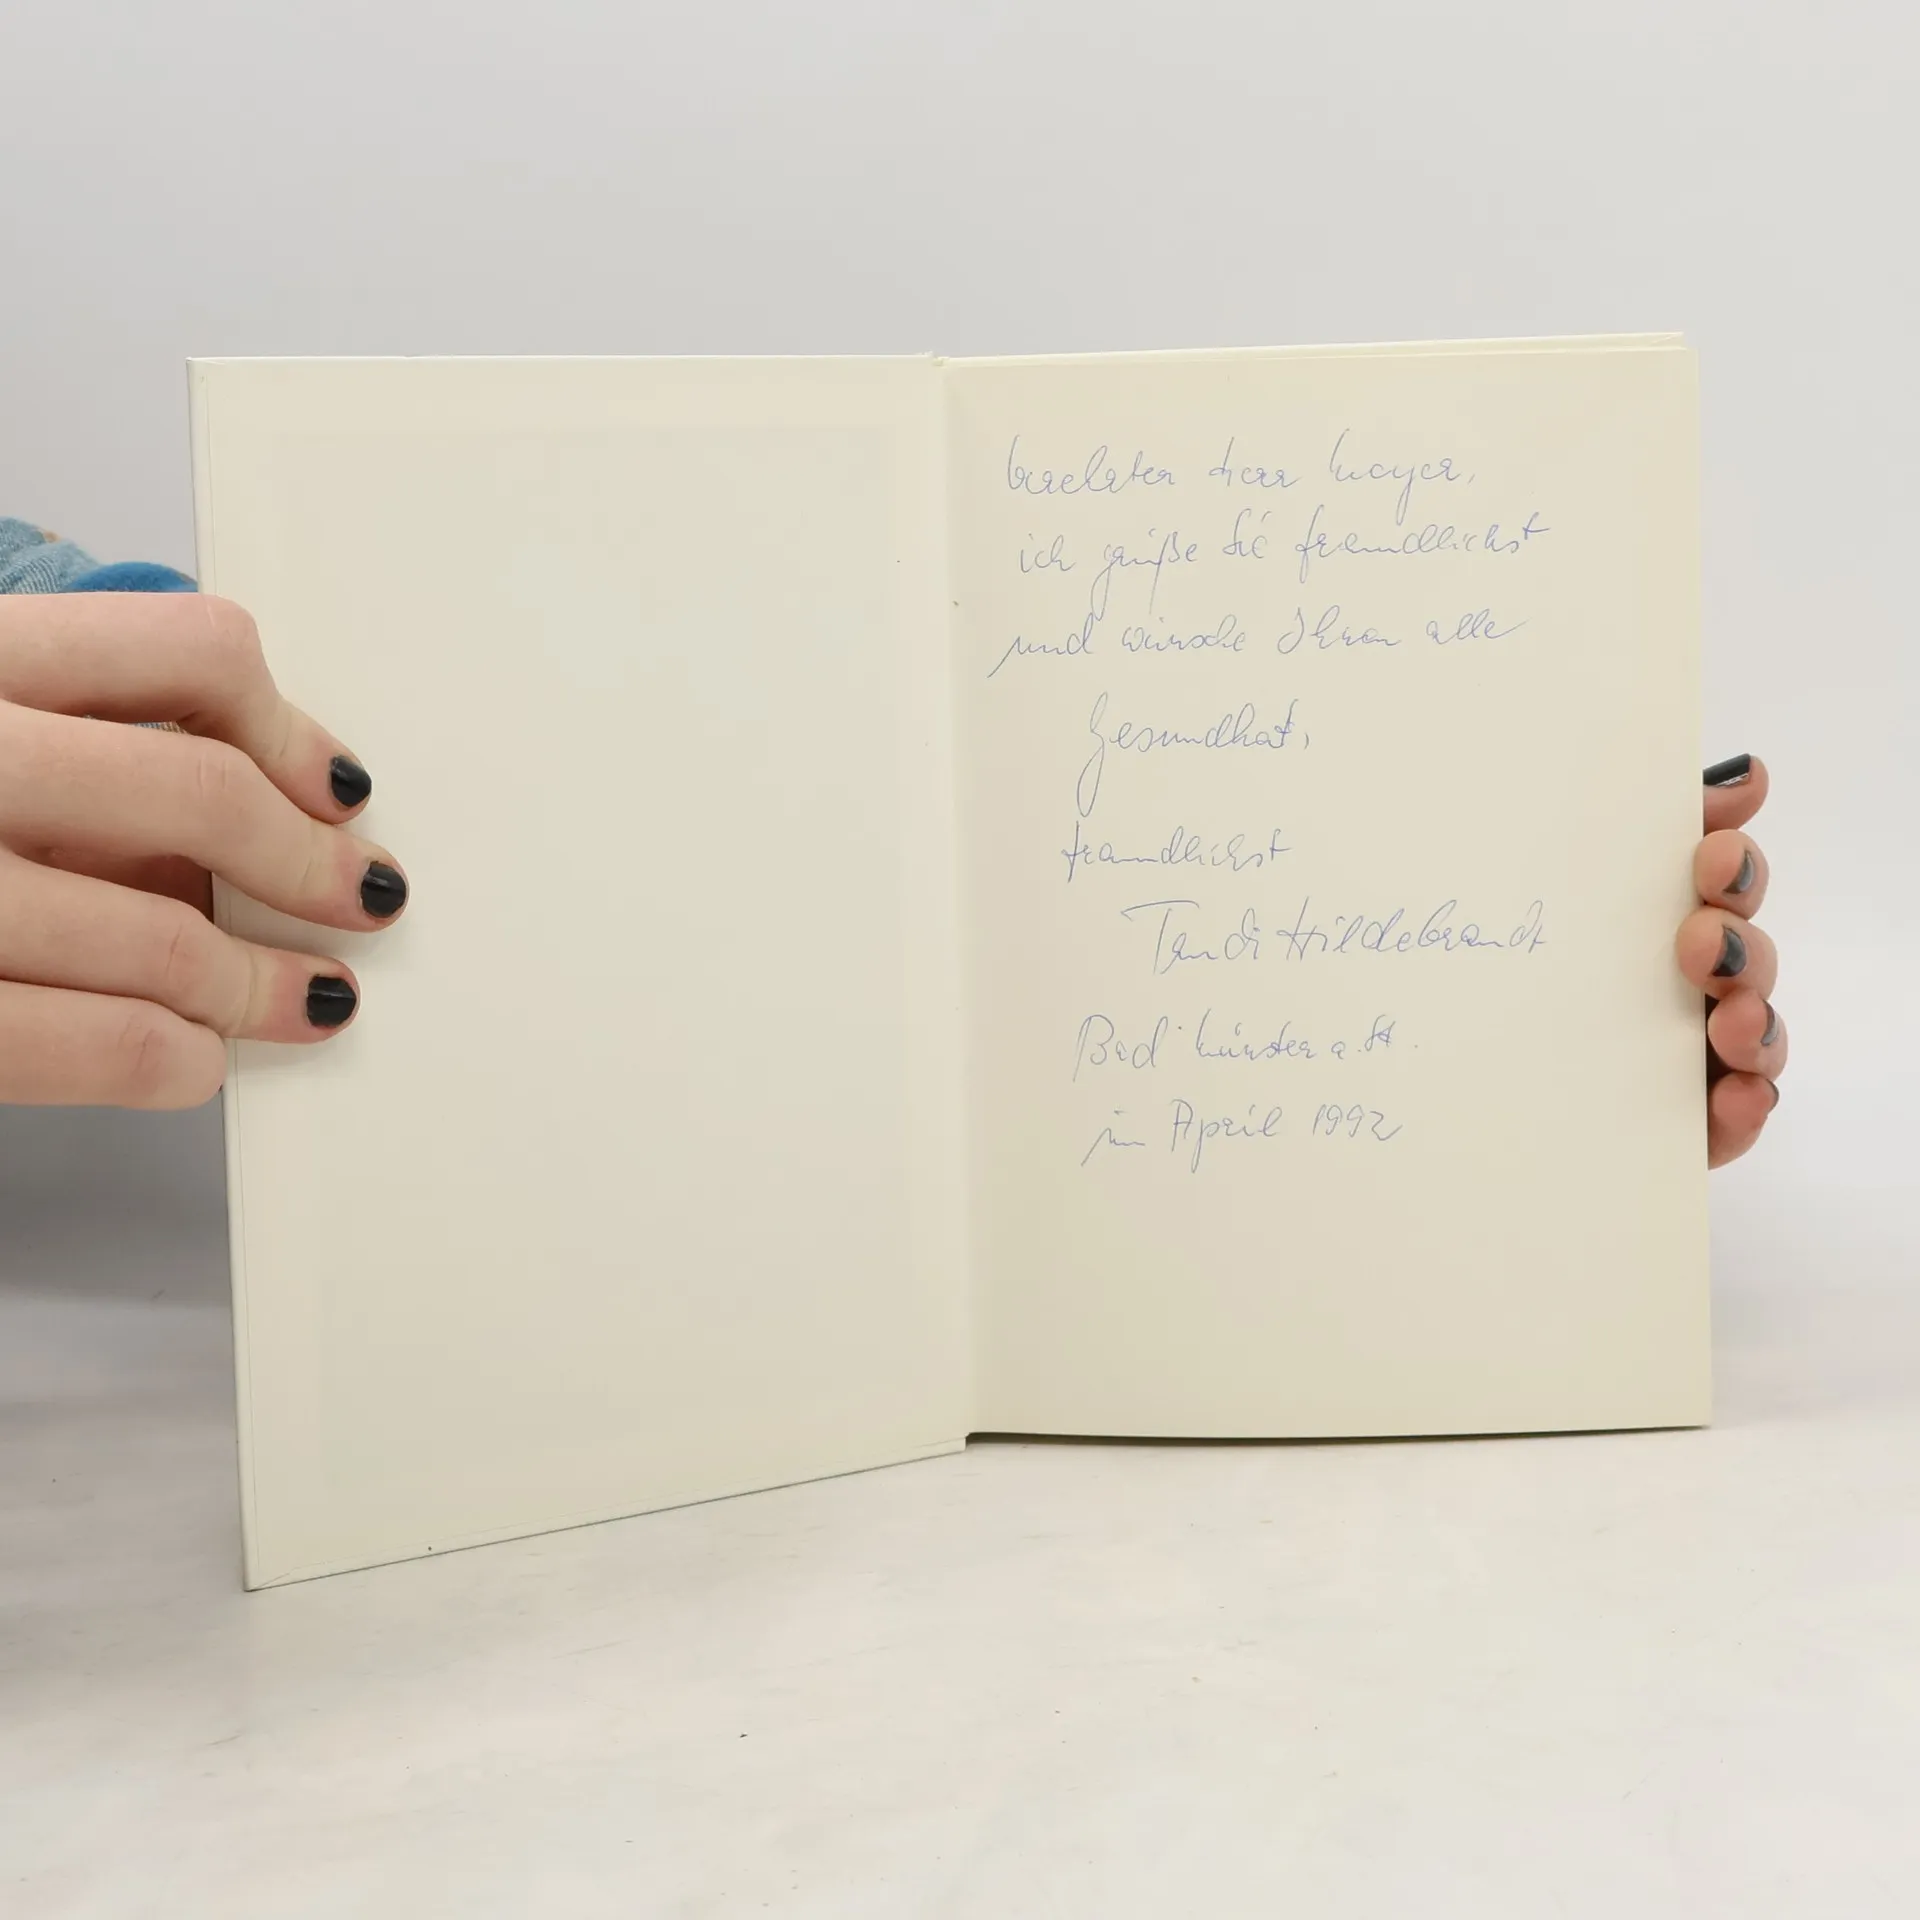 Verehrter Herr Mayer,
ich grüße Sie freundlichst
und wünsche Ihnen alle
Gesundheit,
freundlichst
Hildebrandt
Bad Münster a. St.
im April 1992